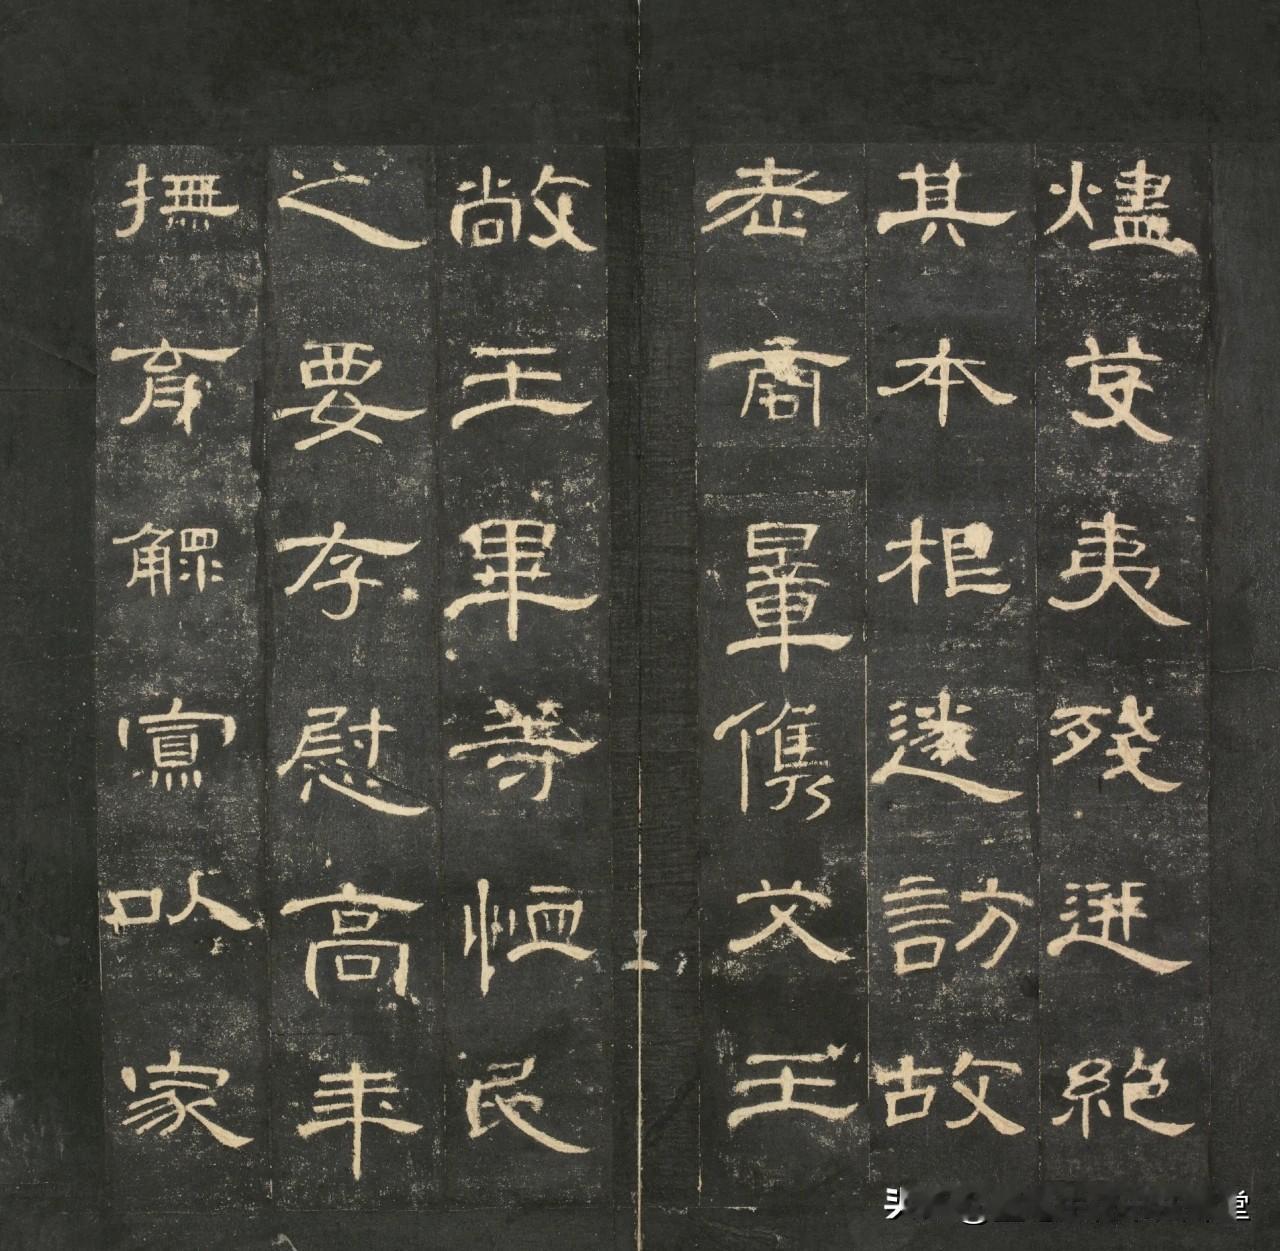 燼芟夷殘迸絕
其本根遂訪故
老商暈儁艾王
敞王畢等恤民
之要存慰高年
撫育鰥寡以家